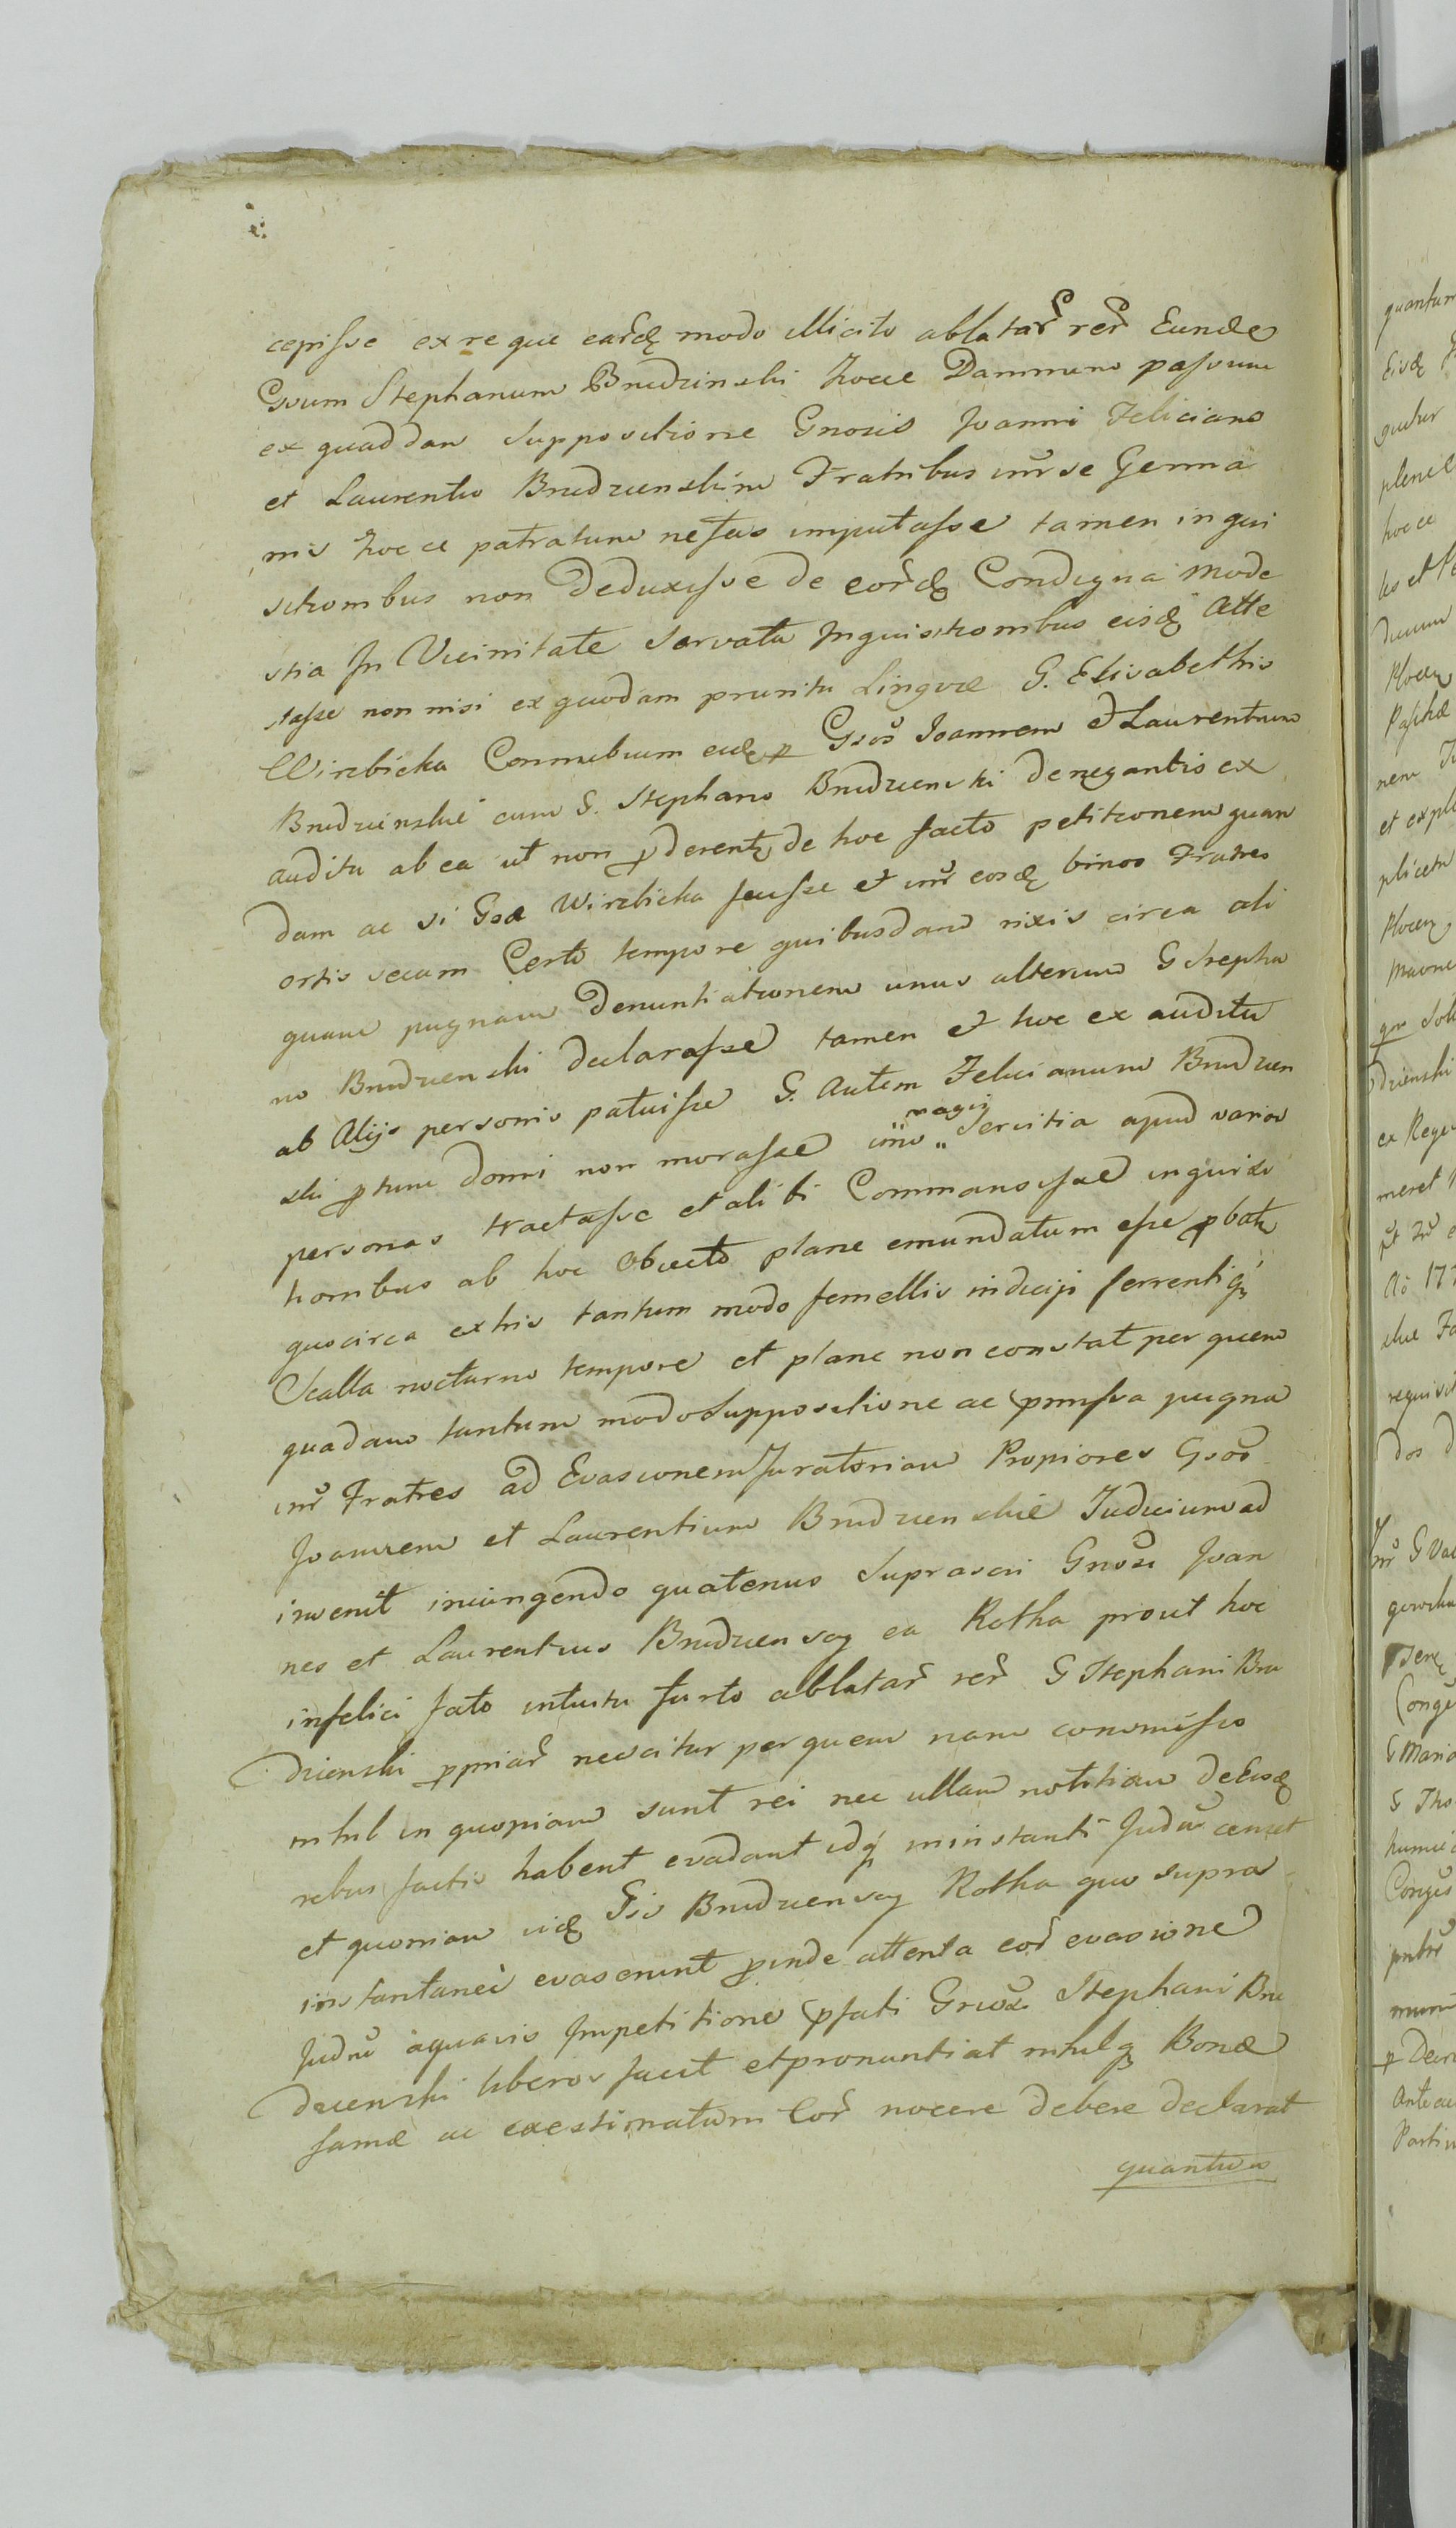 cepisse ex re que eard modo illicito ablatar rer Eunde
Gsum Stephanum Brudzinski hocce Damnum passum
ex quaddam suppositione Gnosis Joanni Feliciano
et Laurentio Brudzienskim Fratribus inr se Germa
nis hocce patratum nefas imputasse tamen inqui
sitionibus non Deduxisse de eord Condigna Mode
stia In Vicinitate servata Inquisitionibus eisd Atte
stasse non nisi ex quodam pruritu Linguæ G. Elisabethis
Wirzbicka Connubium eid p Gsos Joannem et Laurentium
Brudzinskie cum G. Stephano Brudzienski denegantis ex
auditu ab ea ut non pderent de hoc facto petitionem quan
dam ac si Gsa Wirzbicka scisse et inr eosd binos Fratres
ortis secum Certo tempore quibusdam rixis circa ali
quam pugnam Denuntiationem unus alterum G Stepha
no Brudzienski declarasse tamen et hoc ex auditu
ab Alijs personis patuisse G. Autem Felicianum Brudzien
ski ptum domi non morasse imo magis Servitia apud varias
personas tractasse et alibi Commansisse inquisi
tionibus ab hoc obiecto plane emundatum esse pbat
quocirca ex his tantum modo femellis indicijs ferrentiq
Scalla nocturno tempore et plane non constat per quem
quadam tantum modo suppositione ac pmissa pugna
inr Fratres ad Evasionem Juratoriam Propiores Gsos
Joannem et Laurentium Brudzienskie Judicium ad
invenit iniungendo quatenus Suprascri Gnosi Joan
nes et Laurentius Brudzienscy ea Rotha prout hoc
infelici fato intuitu furto ablatar rer G Stephani Bru
dzienski ppriar nescitur per quem nam commisso
nihil in quopiam sunt rei nec ullam notitiam de Eisd
rebus factis habent evadant idq in instanti Judm censet
et quoniam iid Gsi Brudzienscy Rotha quo supra
instantanei evaserunt pinde attenta eor evasione
Judm a quavis Impetitione pfati Gnosi Stephani Bru
dzienski liberos facit et pronuntiat nihilq Bonæ
famæ ac existimationi Eor nocere debere declarat
quantum